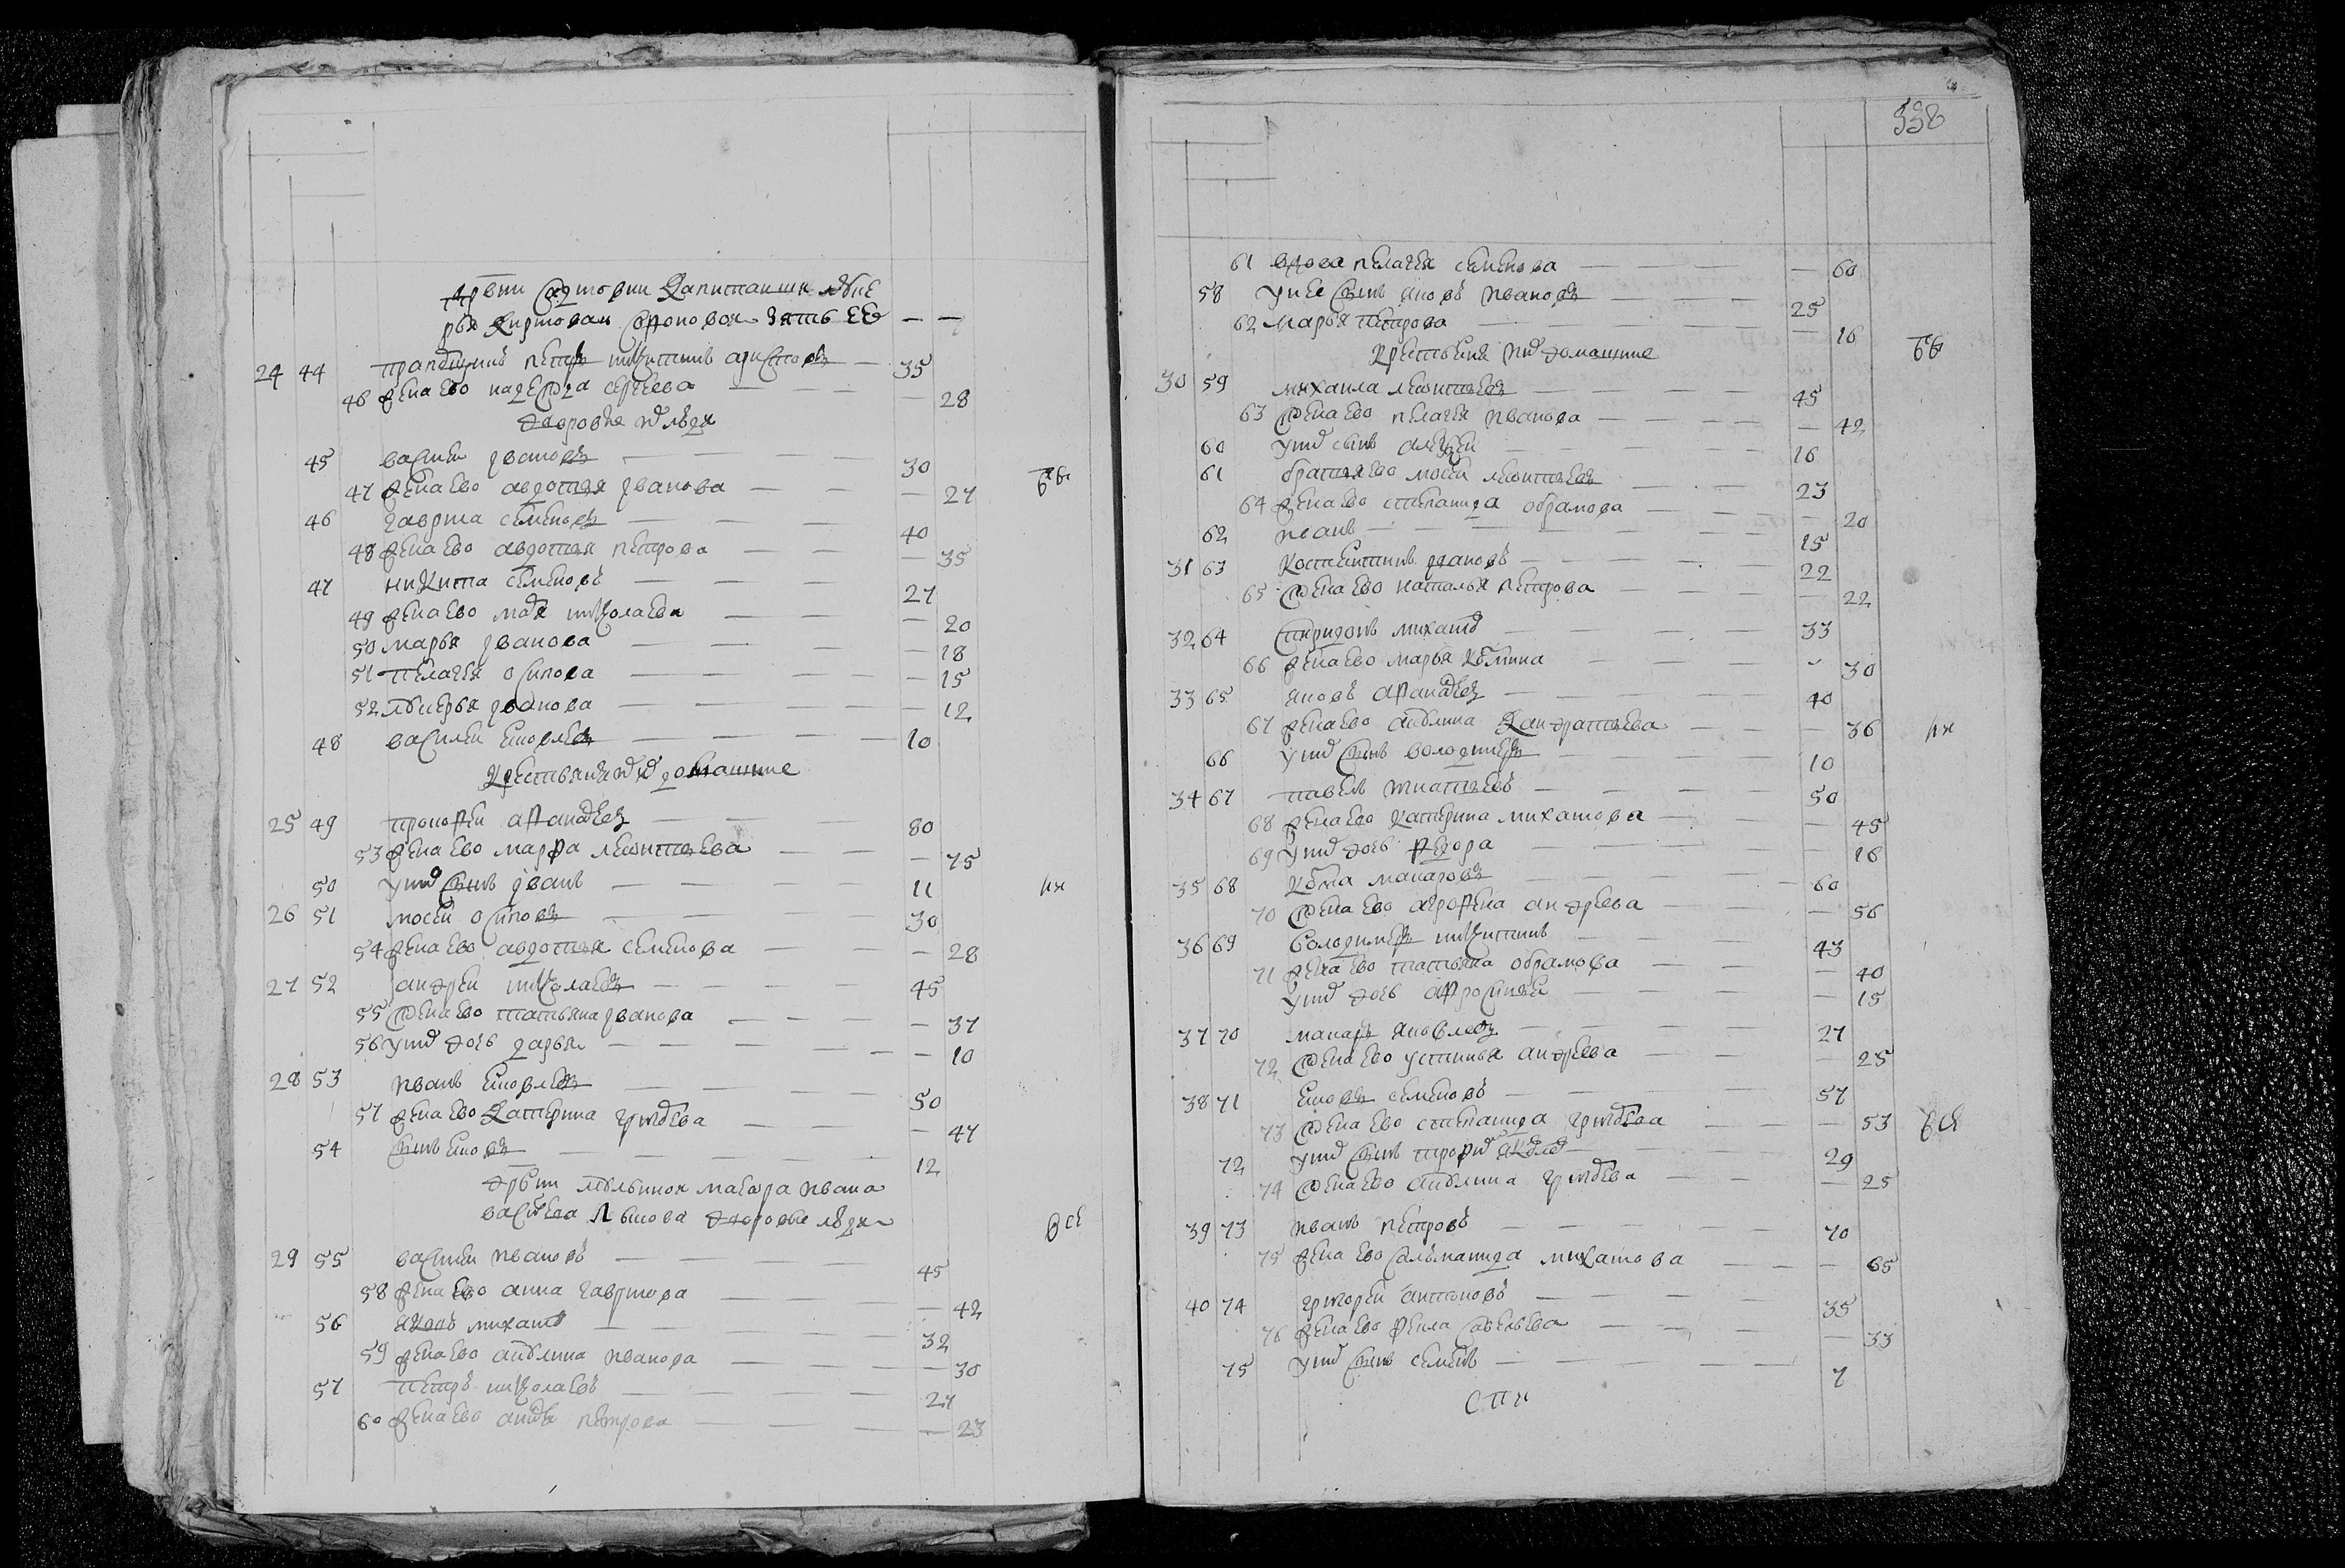 деревни капитанши
зять ее — —
24 44 прапорщик петръ никитинъ — 35
46 жена ево надежда сергеева — 28
дворовые люди
45 василей ивановъ — 30
47 жена ево авдотья иванова — 27
46 гаврила семеновъ — 40
48 жена ево авдотья петрова — 35
47 никита семеновъ — 27
49 жена ево николаева — 20
50 марья иванова — 18
51 пелагея осипова — 15
52 лукерья иванова — 12
48 василей яковлев — 10
крестьяня домашние
25 49 прокофей афанасьев — 80
53 жена ево марфа леонтьева — 75
50 у них сынъ иванъ — 11
26 51 мосей осипов — 30
54 жена ево авдотья семенова — 28
27 52 андреи николаев — 45
55 жена ево татьяна иванова — 37
56 у них дочь дарья — 10
28 53 иванъ яковлев — 50
57 жена ево катерина григорьева — 47
54 сынъ яковъ — 12
деревни маеора ивана
дворовые люди
29 55 василей ивановъ — 45
58 жена ево анна гаврилова — 42
56 яковъ михаилов — 32
59 жена ево акулина иванова — 30
57 петръ николаевъ — 27
60 жена ево петрова — 23
538
61 вдова пелагея семенова — 60
58 у нее сынъ яковъ ивановъ — 25
62 марья петрова — 16
крестьяня домашние
30 59 михаила леонтьевъ — 45
63 жена ево пелагея иванова — 42
60 у них сынъ алексей — 16
61 братъ ево мосей леонтьевъ — 23
64 жена ево степанида обрамова — 20
62 иванъ — 15
31 63 костентинъ ивановъ — 22
65 жена ево наталья петрова — 22
32 64 спиридонъ михаилов — 33
66 жена ево марья кузмина — 30
33 65 яковъ афанасьев — 40
67 жена ево акулина кандратьева — 36
66 у них сынъ володимеръ — 10
34 67 павелъ игнатьевъ — 50
68 жена ево катерина михаилова — 45
69 у них дочь федора — 16
35 68 кузма макаровъ — 60
70 жена ево агрофена андреева — 56
36 69 володимеръ никитинъ — 43
71 жена ево татьяна обрамова — 40
у них дочь афросинья — 15
37 70 макаръ яковлевъ — 27
72 жена ево устинья андреева — 25
38 71 яковъ семеновъ — 57
73 жена ево степанида григорьева — 53
72 у них сынъ — 29
74 жена ево акулина григорьева — 25
39 73 иванъ петровъ — 70
75 жена ево саламанида михаилова — 65
40 74 григорей антоновъ — 35
76 жена ево фекла савельева — 33
75 у них сынъ семенъ — 7